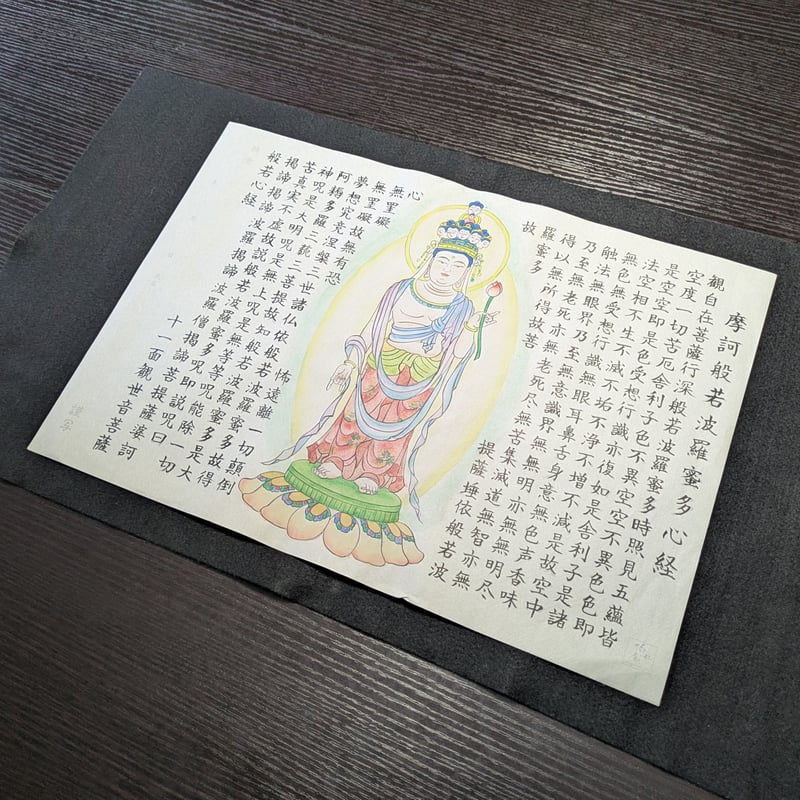 摩訶般若波羅蜜多心経
観自在菩薩行深般若波羅蜜多時照見五蘊皆
空度一切苦厄舎利子色不異空空不異色色即
是空空即是色受想行識亦復如是舎利子是諸
法空相不生不滅不垢不浄不増不減是故空中
無色無受想行識無眼耳鼻舌身意無色声香味
触法無眼界乃至無意識界無無明亦無無明尽
乃至無老死亦無老死尽無苦集滅道無智亦無
得以無所得故菩提薩埵依般若波
羅蜜多
故
心
無罣礙
無罣礙故無有恐怖遠離一切顛倒
夢想究竟涅槃三世諸仏依般若波羅蜜多故得
阿耨多羅三藐三菩提故知般若波羅蜜多是大
神呪是大明呪是無上呪是無等等呪能除一切
苦真実不虚故説般若波羅蜜多呪即説呪曰
掲諦掲諦波羅掲諦波羅僧掲諦菩提薩婆訶
般若心経
十一面観世音菩薩
謹写